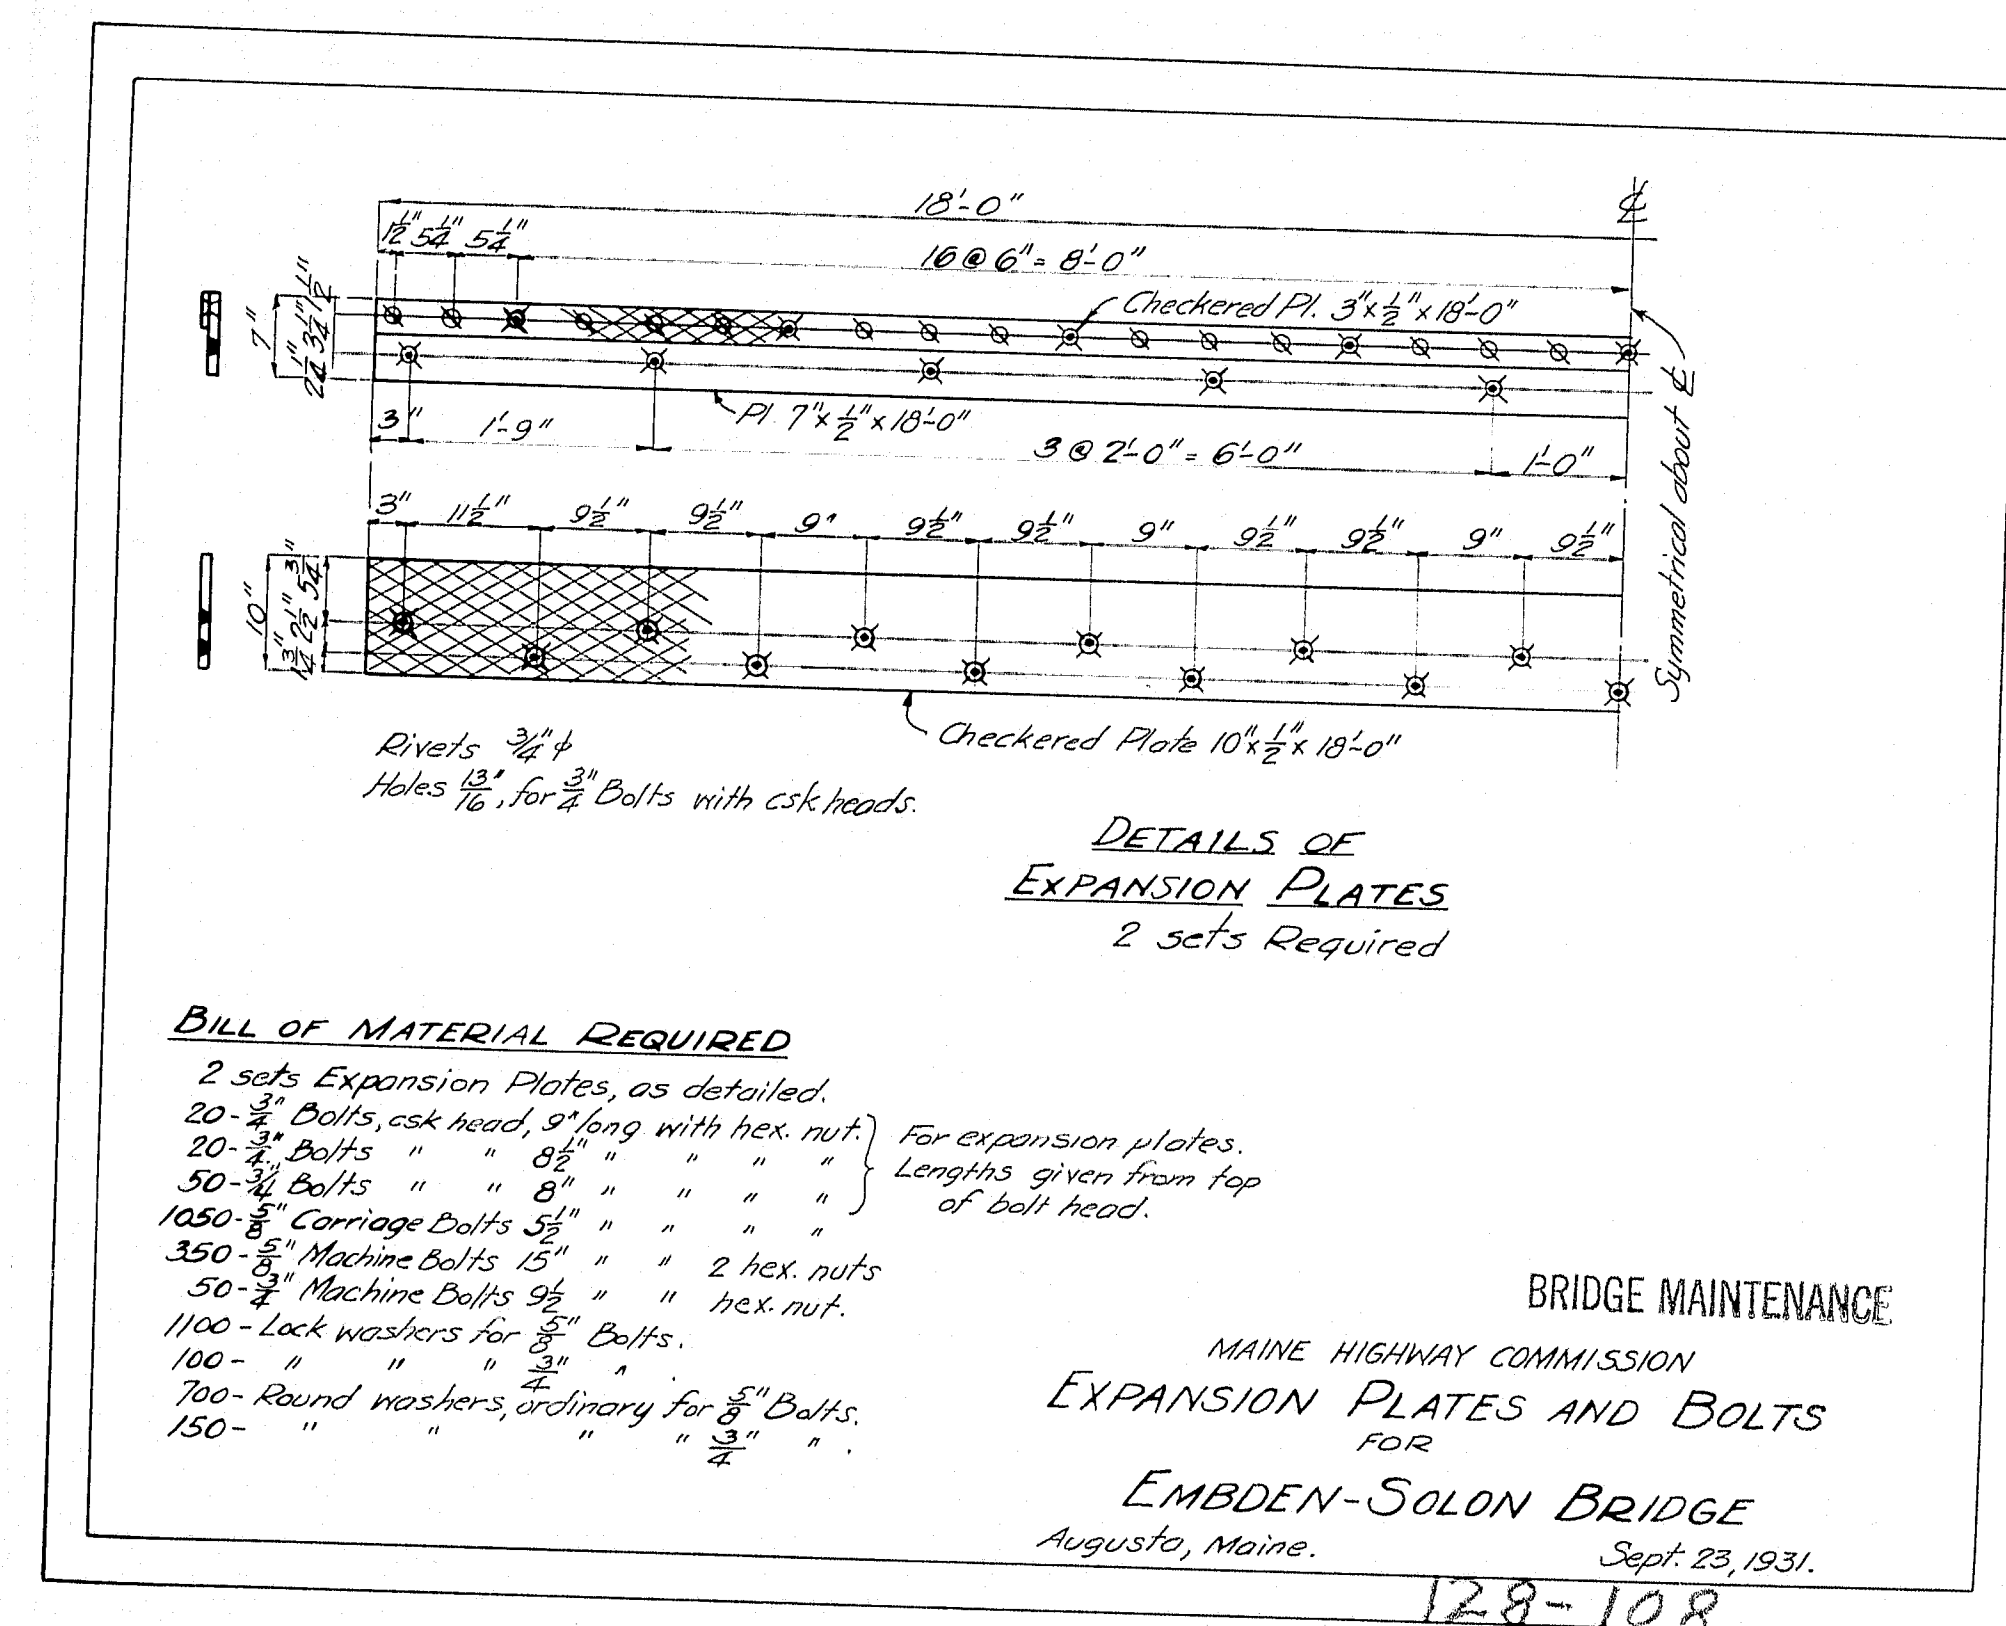 18'-0"
℄
1½" 5¼" 5¼"
16 @ 6" = 8'-0"
Checkered Pl. 3"x½"x18'-0"
7"
2¼" 3¼" 1½"
Pl. 7"x½"x18'-0"
3"
1'-9"
3 @ 2'-0" = 6'-0"
1'-0"
Symmetrical about ℄
3" 11½" 9½" 9½" 9" 9½" 9½" 9" 9½" 9½" 9" 9½"
10"
1¾" 2½" 5¾"
Checkered Plate 10"x½"x 18'-0"
Rivets ¾" ϕ
Holes 13/16", for ¾" Bolts with csk heads.
DETAILS OF
EXPANSION PLATES
2 sets Required
BILL OF MATERIAL REQUIRED
2 sets Expansion Plates, as detailed.
20-¾" Bolts, csk head, 9" long with hex. nut.
20-¾" Bolts " " 8½" " " " "
50-¾" Bolts " " 8" " " " "
For expansion plates.
Lengths given from top
of bolt head.
1050-⅝" Carriage Bolts 5½" " " " "
350-⅝" Machine Bolts 15" " " 2 hex. nuts
50-¾" Machine Bolts 9½ " " hex. nut.
1100-Lock washers for ⅝" Bolts.
100- " " " ¾" " .
700-Round washers, ordinary for ⅝" Bolts.
150- " " " " ¾" " .
BRIDGE MAINTENANCE
MAINE HIGHWAY COMMISSION
EXPANSION PLATES AND BOLTS
FOR
EMBDEN-SOLON BRIDGE
Augusta, Maine. Sept. 23, 1931.
128-108